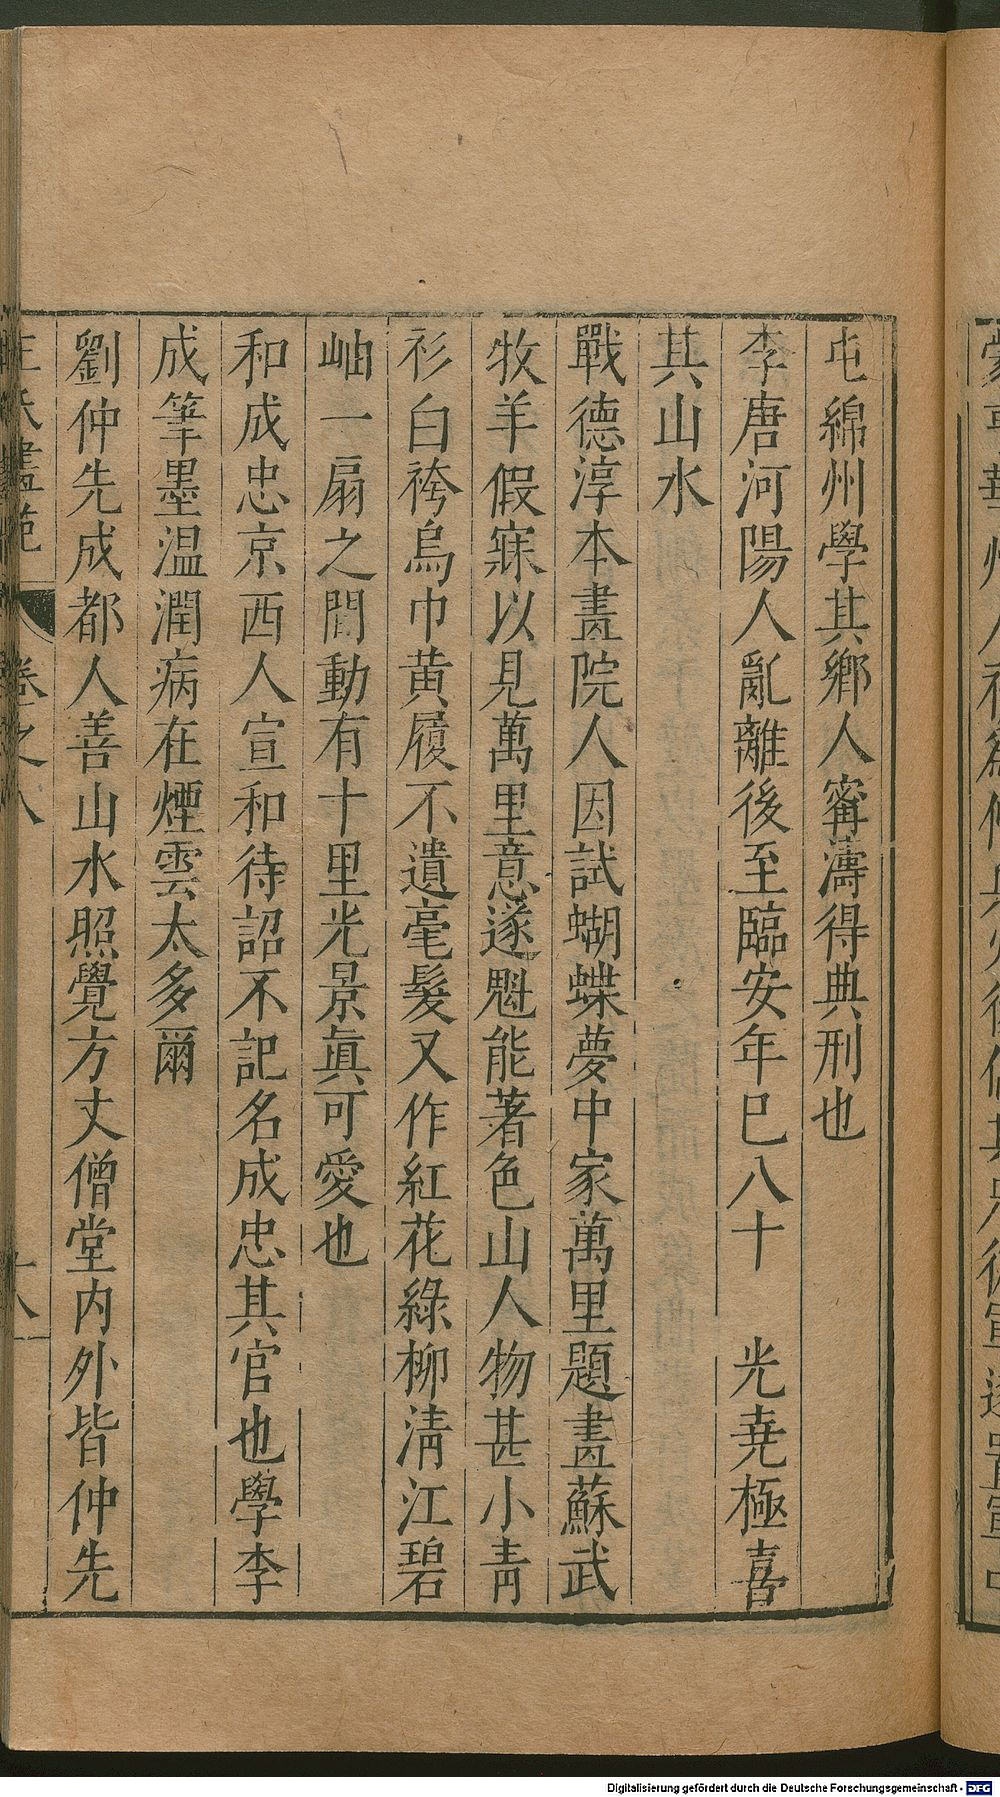 屯綿州學其鄉人甯濤得典刑也
李唐河陽人亂離後至臨安年巳八十　光堯極喜
其山水
戰德淳本畫院人因試蝴蝶夢中家萬里題畫蘇武
牧羊假寐以見萬里意遂魁能著色山人物甚小青
衫白袴烏巾黄履不遺毫髮又作紅花綠柳清江碧
岫一扇之間動有十里光景眞可愛也
和成忠京西人宣和待詔不記名成忠其官也學李
成筆墨温潤病在煙雲太多爾
劉仲先成都人善山水照覺方丈僧堂内外皆仲先
王氏畫苑　卷之八　十八
Digitalisierung gefördert durch die Deutsche Forschungsgemeinschaft - DFG